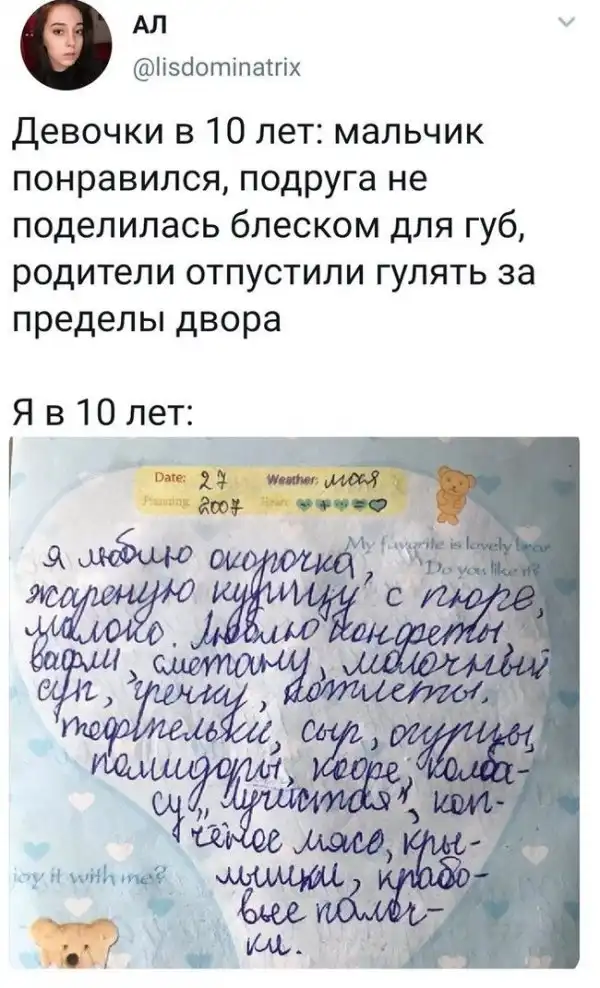 АЛ
@lisdominatrix
Девочки в 10 лет: мальчик
понравился, подруга не
поделилась блеском для губ,
родители отпустили гулять за
пределы двора
Я в 10 лет:
Date: 27 Weather: мая
Planning: 2007 Heart:
My favorite is lovely bear
Do you like it?
Я люблю окорочка,
жареную курицу с пюре,
молоко. Люблю конфеты,
вафли, сметану, молочный
суп, гречку, котлеты.
тефтельки, сыр, огурцы,
помидоры, кофе, колба-
су, "лучистая", коп-
чёное мясо, кры-
лышки, крабо-
вые палоч-
ки.
joy it with me?